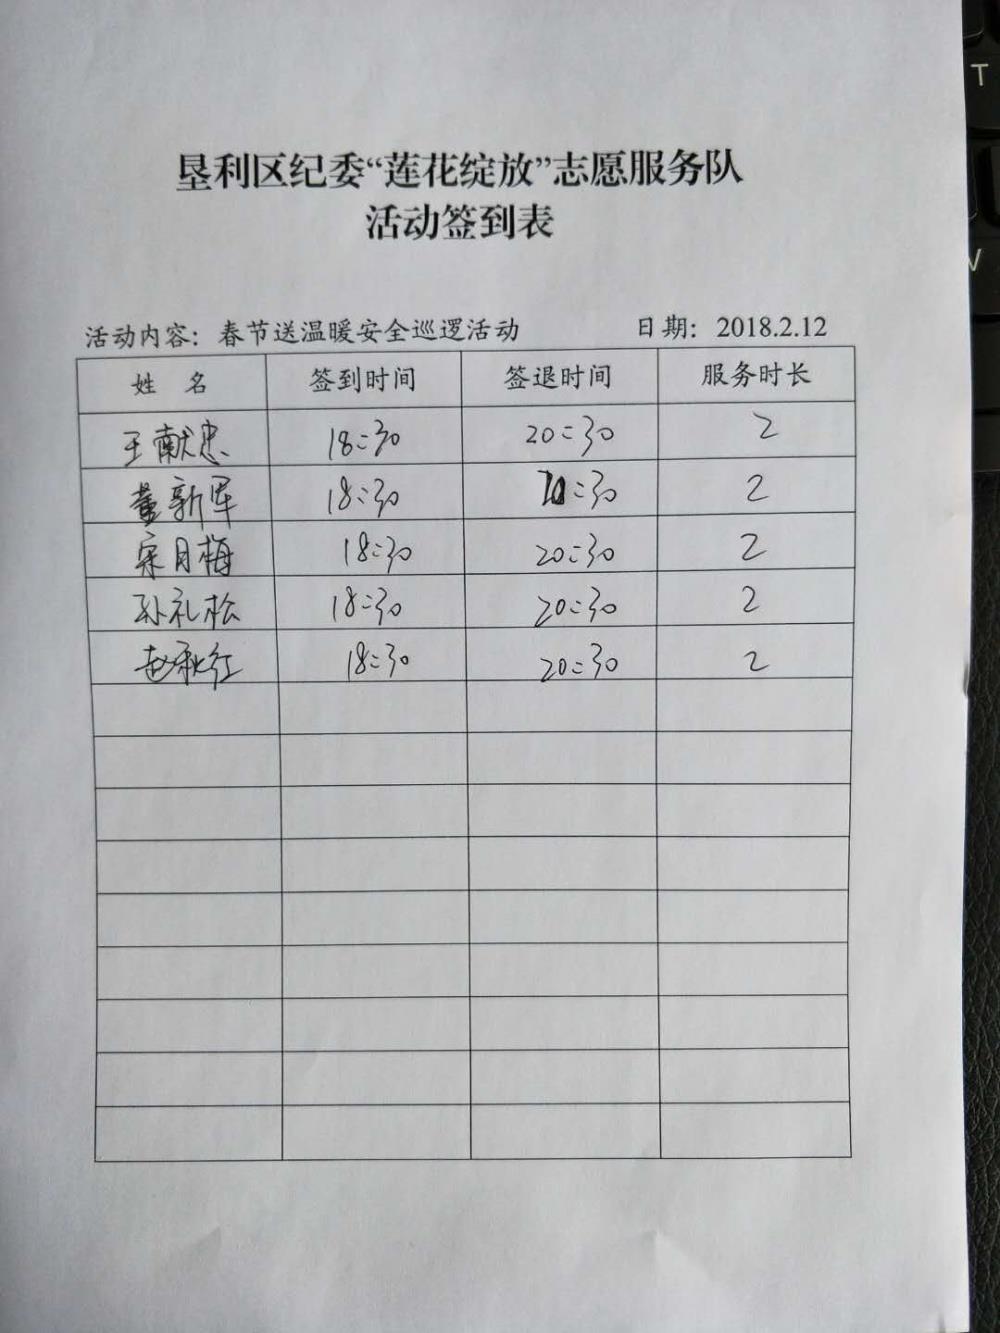 垦利区纪委“莲花绽放”志愿服务队
活动签到表
活动内容：春节送温暖安全巡逻活动 日期：2018.2.12
姓 名 签到时间 签退时间 服务时长
王献忠 18:30 20:30 2
董新军 18:30 20:30 2
宋月梅 18:30 20:30 2
孙礼松 18:30 20:30 2
赵秋红 18:30 20:30 2
T
V